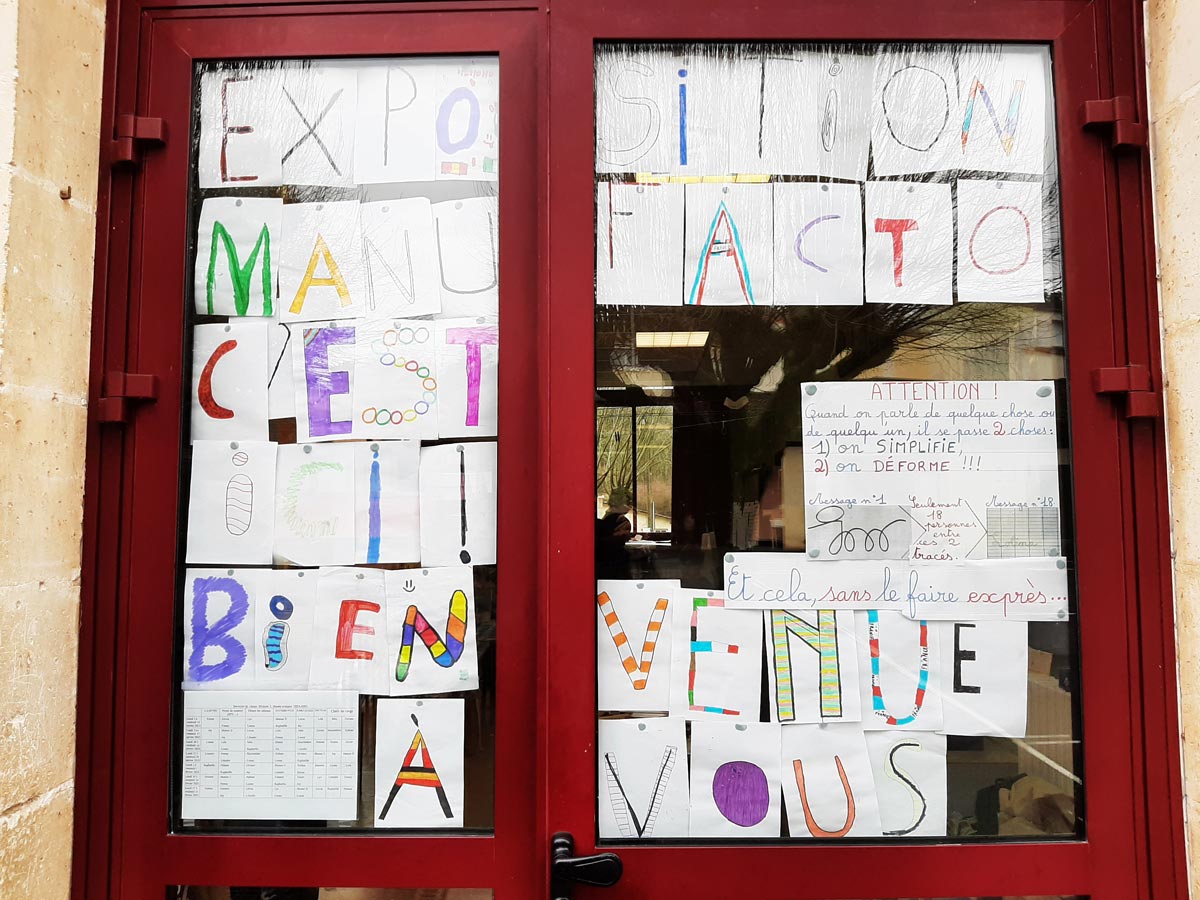 EXPOSiTiON
MANUFACTO
C'EST
iCi!
BiENVENUE
À VOUS
ATTENTION !
Quand on parle de quelque chose ou
de quelqu'un, il se passe 2 choses :
1) on SIMPLIFIE,
2) on DÉFORME !!!
Message n°1
Seulement
18
personnes
entre
ces 2
tracés.
Message n°18
Et cela, sans le faire exprès...